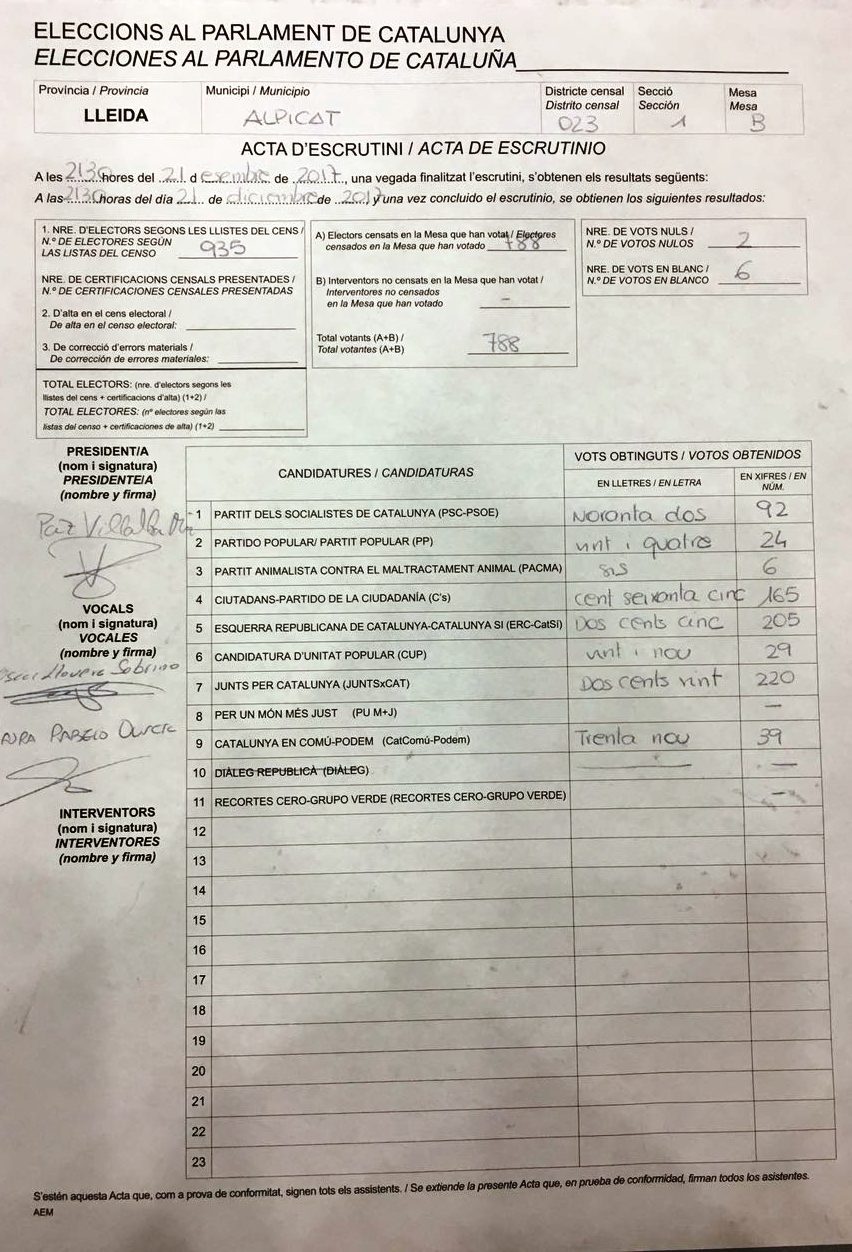 ELECCIONS AL PARLAMENT DE CATALUNYA
ELECCIONES AL PARLAMENTO DE CATALUÑA
Província / Provincia
LLEIDA
Municipi / Municipio
ALPICAT
Districte censal
Distrito censal
023
Secció
Sección
1
Mesa
Mesa
B
ACTA D'ESCRUTINI / ACTA DE ESCRUTINIO
A les 2130 hores del 21 d esembre de 2017, una vegada finalitzat l'escrutini, s'obtenen els resultats següents:
A las 2130 horas del día 21 de diciembre de 2017 y una vez concluido el escrutinio, se obtienen los siguientes resultados:
1. NRE. D'ELECTORS SEGONS LES LLISTES DEL CENS /
N.º DE ELECTORES SEGÚN
LAS LISTAS DEL CENSO 935
NRE. DE CERTIFICACIONS CENSALS PRESENTADES /
N.º DE CERTIFICACIONES CENSALES PRESENTADAS
2. D'alta en el cens electoral /
De alta en el censo electoral:
3. De correcció d'errors materials /
De corrección de errores materiales:
TOTAL ELECTORS: (nre. d'electors segons les
llistes del cens + certificacions d'alta) (1+2) /
TOTAL ELECTORES: (nº electores según las
listas del censo + certificaciones de alta) (1+2)
A) Electors censats en la Mesa que han votat / Electores
censados en la Mesa que han votado 788
B) Interventors no censats en la Mesa que han votat /
Interventores no censados
en la Mesa que han votado –
Total votants (A+B) /
Total votantes (A+B) 788
NRE. DE VOTS NULS /
N.º DE VOTOS NULOS 2
NRE. DE VOTS EN BLANC /
N.º DE VOTOS EN BLANCO 6
PRESIDENT/A
(nom i signatura)
PRESIDENTE/A
(nombre y firma)
Paz Villalba
VOCALS
(nom i signatura)
VOCALES
(nombre y firma)
Sobrino
INTERVENTORS
(nom i signatura)
INTERVENTORES
(nombre y firma)
CANDIDATURES / CANDIDATURAS
VOTS OBTINGUTS / VOTOS OBTENIDOS
EN LLETRES / EN LETRA
EN XIFRES / EN NÚM.
1 PARTIT DELS SOCIALISTES DE CATALUNYA (PSC-PSOE) Noranta dos 92
2 PARTIDO POPULAR/ PARTIT POPULAR (PP) vint i quatre 24
3 PARTIT ANIMALISTA CONTRA EL MALTRACTAMENT ANIMAL (PACMA) sis 6
4 CIUTADANS-PARTIDO DE LA CIUDADANÍA (C's) cent seixanta cinc 165
5 ESQUERRA REPUBLICANA DE CATALUNYA-CATALUNYA SI (ERC-CatSí) Dos cents cinc 205
6 CANDIDATURA D'UNITAT POPULAR (CUP) vint i nou 29
7 JUNTS PER CATALUNYA (JUNTSxCAT) Dos cents vint 220
8 PER UN MÓN MÉS JUST (PU M+J) —
9 CATALUNYA EN COMÚ-PODEM (CatComú-Podem) Trenta nou 39
10 DIÀLEG REPUBLICÀ (DIÀLEG) — —
11 RECORTES CERO-GRUPO VERDE (RECORTES CERO-GRUPO VERDE) —
12
13
14
15
16
17
18
19
20
21
22
23
S'estén aquesta Acta que, com a prova de conformitat, signen tots els assistents. / Se extiende la presente Acta que, en prueba de conformidad, firman todos los asistentes.
AEM